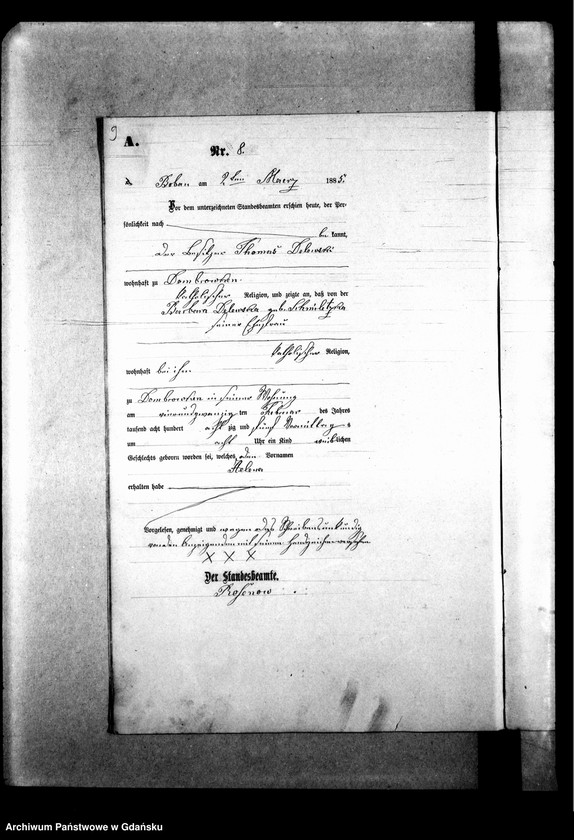 9
A.
Nr. 8.
Boban am 2ten Maerz 1885.
Vor dem unterzeichneten Standesbeamten erschien heute, der Per-
sönlichkeit nach
be kannt,
der Besitzer Thomas Delewski
wohnhaft zu Dombrowken
katholischer Religion, und zeigte an, daß von der
Barbara Delewska geb.
seiner Ehefrau
katholischer Religion,
wohnhaft bei ihm
zu Dombrowken in seiner Wohnung
am einundzwanzig ten Februar des Jahres
tausend acht hundert acht zig und fünf Vormittag s
um acht Uhr ein Kind weiblichen
Geschlechts geboren worden sei, welches den Vornamen
Helena
erhalten habe
Vorgelesen, genehmigt und wegen Schreibensunkundig
von dem Anzeigenden mit seinem Handzeichen versehen
X X X
Der Standesbeamte.
Rosenow
Archiwum Państwowe w Gdańsku